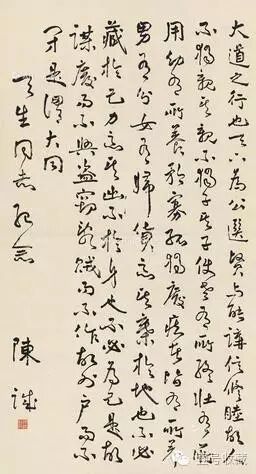 大道之行也天下為公選賢與能講信修睦故人
不獨親其親不獨子其子使老有所終壯有所
用幼有所長矜寡孤獨廢疾者皆有所養
男有分女有歸貨惡其棄於地也不必
藏於己力惡其不出於身也不必為己是故
謀閉而不興盜竊亂賊而不作故外戶而不
閉是謂大同
天生同志 紀念
陳誠
号收藏